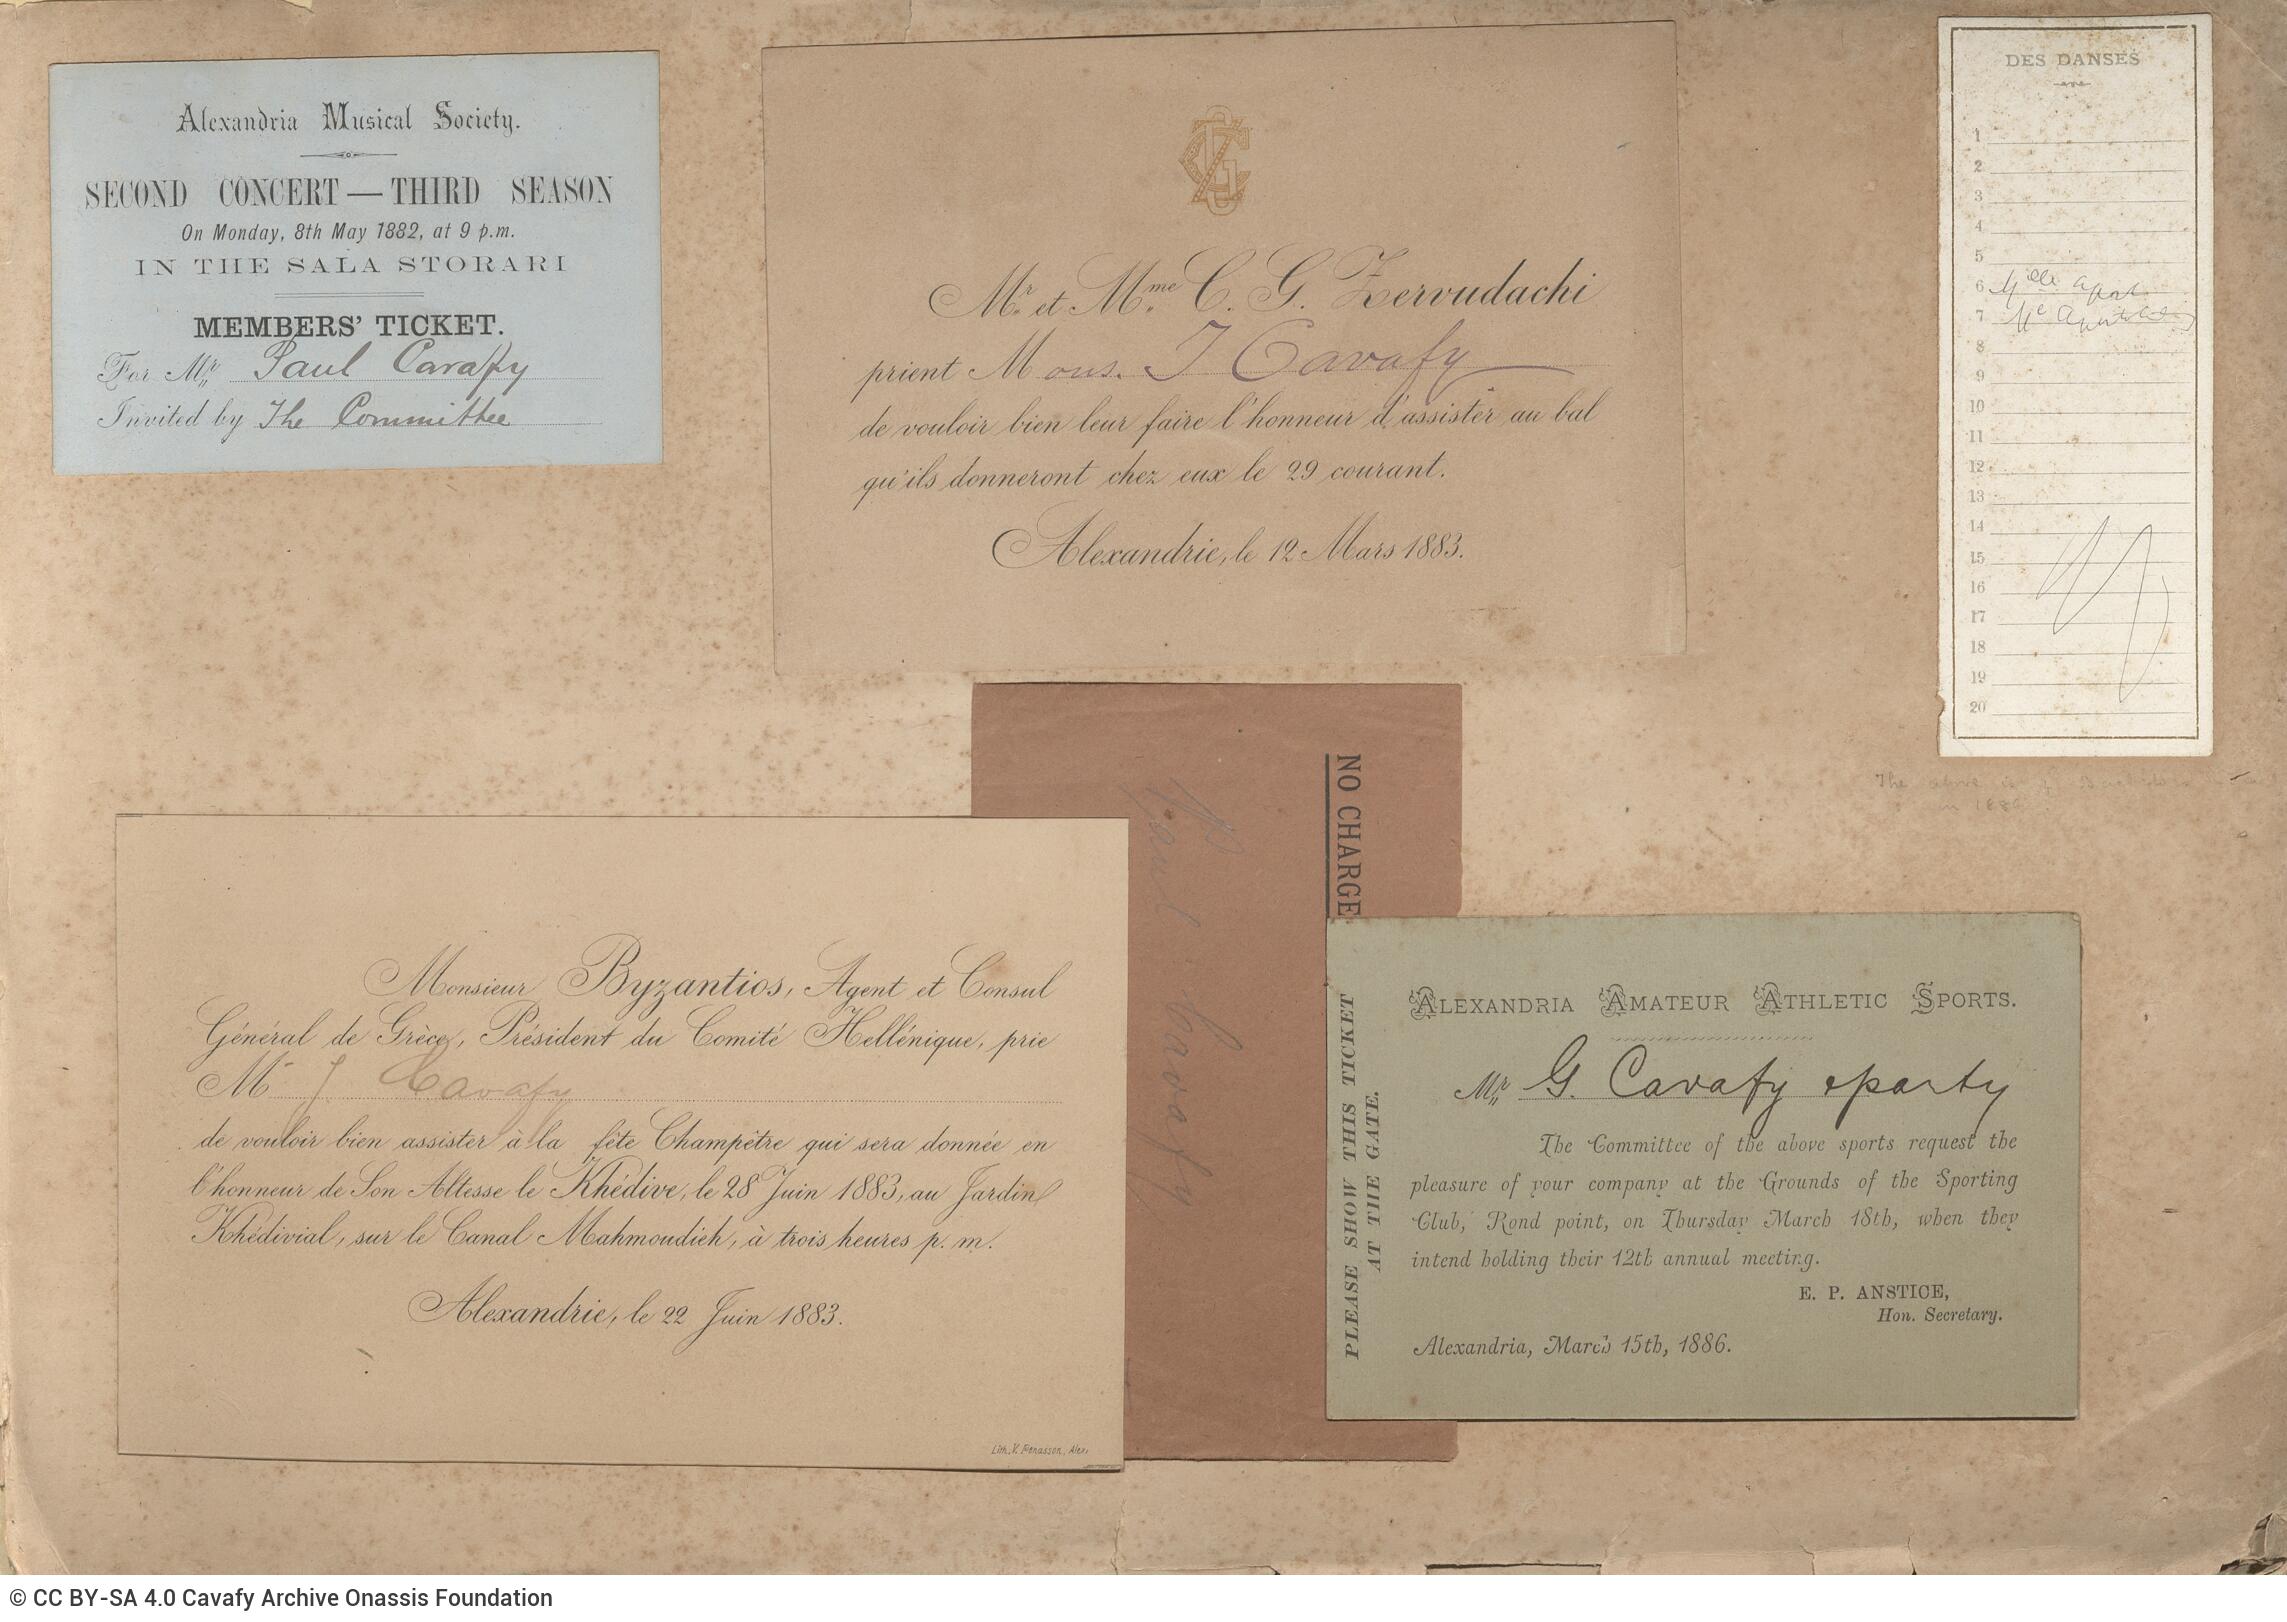 Alexandria Musical Society.
SECOND CONCERT — THIRD SEASON
On Monday, 8th May 1882, at 9 p.m.
IN THE SALA STORARI
MEMBERS' TICKET.
For Mr. Paul Cavafy
Invited by The Committee
Mr. et Mme. C. G. Zervudachi
prient Mons. J Cavafy
de vouloir bien leur faire l'honneur d'assister au bal
qu'ils donneront chez eux le 29 courant.
Alexandrie, le 12 Mars 1883.
DES DANSES
1
2
3
4
5
6 Melle
7
8
9
10
11
12
13
14
15
16
17
18
19
20
The above is
in
NO CHARGE
Paul Cavafy
Monsieur Byzantios, Agent et Consul
Général de Grèce, Président du Comité Hellénique, prie
Mr J. Cavafy
de vouloir bien assister à la fête Champêtre qui sera donnée en
l'honneur de Son Altesse le Khédive, le 28 Juin 1883, au Jardin
Khédivial, sur le Canal Mahmoudieh, à trois heures p. m.
Alexandrie, le 22 Juin 1883.
Lith. V. Penasson, Alex.
PLEASE SHOW THIS TICKET
AT THE GATE.
ALEXANDRIA AMATEUR ATHLETIC SPORTS.
Mr. G. Cavafy & party
The Committee of the above sports request the
pleasure of your company at the Grounds of the Sporting
Club, Rond point, on Thursday March 18th, when they
intend holding their 12th annual meeting.
E. P. ANSTICE,
Hon. Secretary.
Alexandria, March 15th, 1886.
© CC BY-SA 4.0 Cavafy Archive Onassis Foundation